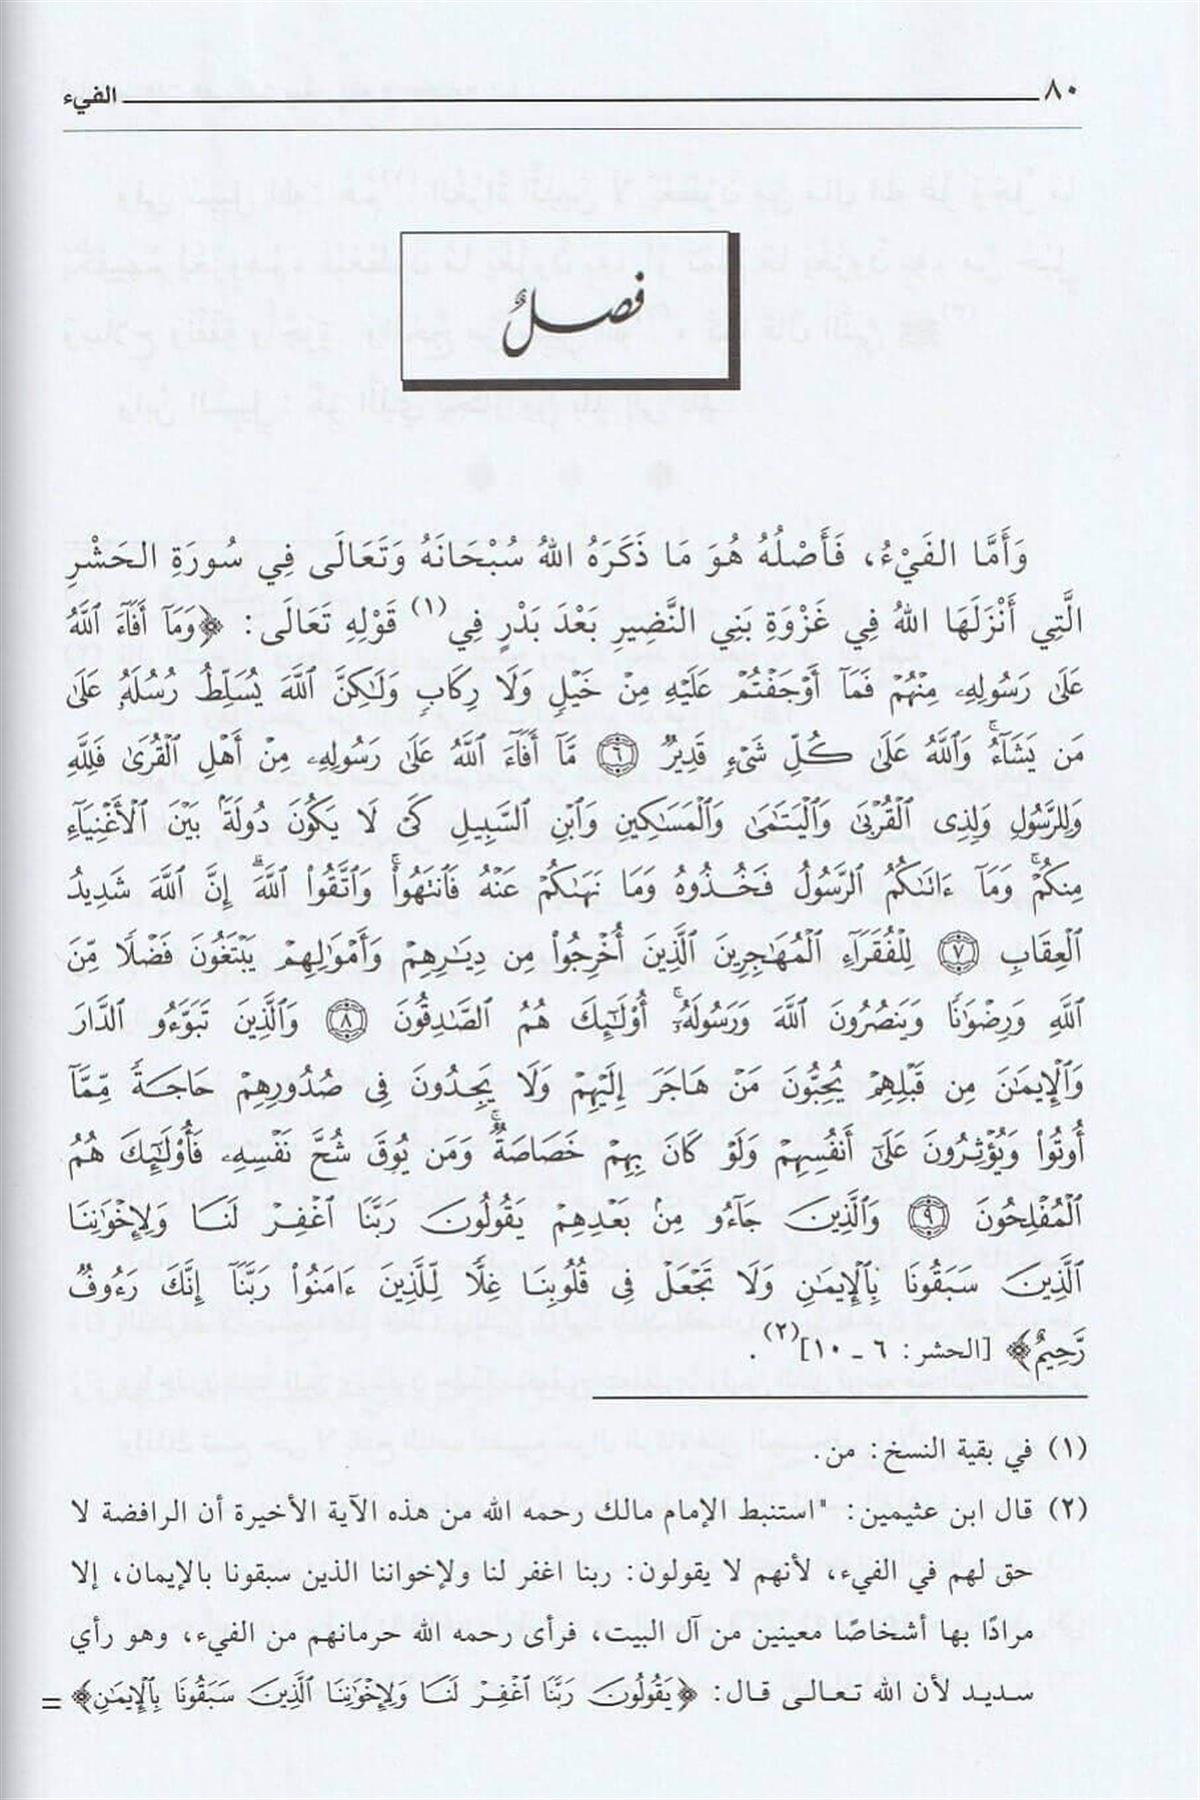 ٨٠ الفيء
فصلٌ
وَأَمَّا الفَيْءُ، فَأَصْلُهُ هُوَ مَا ذَكَرَهُ اللهُ سُبْحَانَهُ وَتَعَالَى فِي سُورَةِ الحَشْرِ
الَّتِي أَنْزَلَهَا اللهُ فِي غَزْوَةِ بَنِي النَّضِيرِ بَعْدَ بَدْرٍ فِي(١) قَوْلِهِ تَعَالَى: ﴿وَمَآ أَفَآءَ ٱللَّهُ
عَلَىٰ رَسُولِهِۦ مِنْهُمْ فَمَآ أَوْجَفْتُمْ عَلَيْهِ مِنْ خَيْلٍ وَلَا رِكَابٍ وَلَـٰكِنَّ ٱللَّهَ يُسَلِّطُ رُسُلَهُۥ عَلَىٰ
مَن يَشَآءُۚ وَٱللَّهُ عَلَىٰ كُلِّ شَىْءٍ قَدِيرٌ ٦ مَّآ أَفَآءَ ٱللَّهُ عَلَىٰ رَسُولِهِۦ مِنْ أَهْلِ ٱلْقُرَىٰ فَلِلَّهِ
وَلِلرَّسُولِ وَلِذِى ٱلْقُرْبَىٰ وَٱلْيَتَـٰمَىٰ وَٱلْمَسَـٰكِينِ وَٱبْنِ ٱلسَّبِيلِ كَىْ لَا يَكُونَ دُولَةًۢ بَيْنَ ٱلْأَغْنِيَآءِ
مِنكُمْۚ وَمَآ ءَاتَىٰكُمُ ٱلرَّسُولُ فَخُذُوهُ وَمَا نَهَىٰكُمْ عَنْهُ فَٱنتَهُوا۟ۚ وَٱتَّقُوا۟ ٱللَّهَۖ إِنَّ ٱللَّهَ شَدِيدُ
ٱلْعِقَابِ ٧ لِلْفُقَرَآءِ ٱلْمُهَـٰجِرِينَ ٱلَّذِينَ أُخْرِجُوا۟ مِن دِيَـٰرِهِمْ وَأَمْوَٰلِهِمْ يَبْتَغُونَ فَضْلًا مِّنَ
ٱللَّهِ وَرِضْوَٰنًا وَيَنصُرُونَ ٱللَّهَ وَرَسُولَهُۥٓۚ أُو۟لَـٰٓئِكَ هُمُ ٱلصَّـٰدِقُونَ ٨ وَٱلَّذِينَ تَبَوَّءُو ٱلدَّارَ
وَٱلْإِيمَـٰنَ مِن قَبْلِهِمْ يُحِبُّونَ مَنْ هَاجَرَ إِلَيْهِمْ وَلَا يَجِدُونَ فِى صُدُورِهِمْ حَاجَةً مِّمَّآ
أُوتُوا۟ وَيُؤْثِرُونَ عَلَىٰٓ أَنفُسِهِمْ وَلَوْ كَانَ بِهِمْ خَصَاصَةٌۚ وَمَن يُوقَ شُحَّ نَفْسِهِۦ فَأُو۟لَـٰٓئِكَ هُمُ
ٱلْمُفْلِحُونَ ٩ وَٱلَّذِينَ جَآءُو مِنۢ بَعْدِهِمْ يَقُولُونَ رَبَّنَا ٱغْفِرْ لَنَا وَلِإِخْوَٰنِنَا
ٱلَّذِينَ سَبَقُونَا بِٱلْإِيمَـٰنِ وَلَا تَجْعَلْ فِى قُلُوبِنَا غِلًّا لِّلَّذِينَ ءَامَنُوا۟ رَبَّنَآ إِنَّكَ رَءُوفٌ
رَّحِيمٌ﴾ [الحشر: ٦ ـ ١٠](٢).
(١) في بقية النسخ: من.
(٢) قال ابن عثيمين: "استنبط الإمام مالك رحمه الله من هذه الآية الأخيرة أن الرافضة لا
حق لهم في الفيء، لأنهم لا يقولون: ربنا اغفر لنا ولإخواننا الذين سبقونا بالإيمان، إلا
مرادًا بها أشخاصًا معينين من آل البيت، فرأى رحمه الله حرمانهم من الفيء، وهو رأي
سديد لأن الله تعالى قال: ﴿يَقُولُونَ رَبَّنَا ٱغْفِرْ لَنَا وَلِإِخْوَٰنِنَا ٱلَّذِينَ سَبَقُونَا بِٱلْإِيمَـٰنِ﴾ =